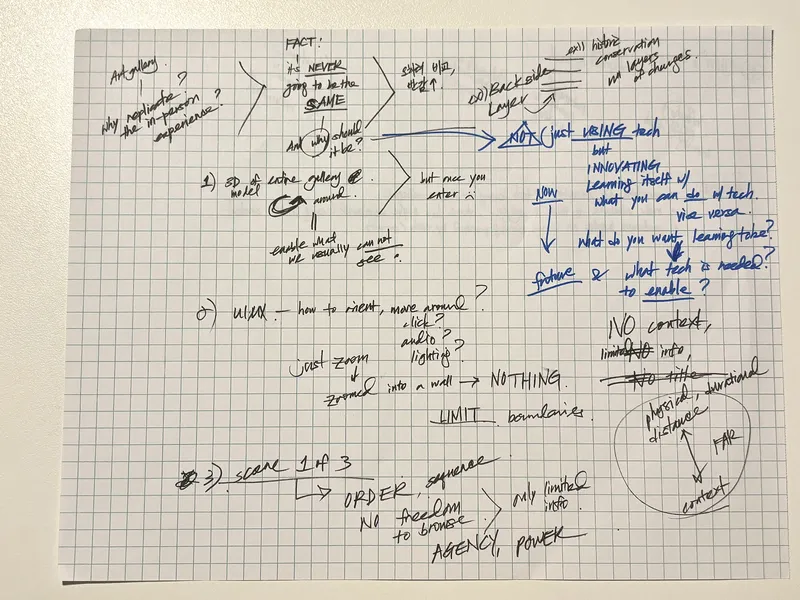 Art gallery.
why replicate?
the in-person
experience?
FACT!
it's NEVER
going to be the
SAME
And why should
it be?
오히려 비교,
반감↑.
Backside
Layer
historic
conservation
layers
of changes.
NOT just USING tech
but
INNOVATING
learning itself w/
what you can do w/ tech.
vice versa.
Now
what do you want learning to be?
future & what tech is needed?
to enable?
1) 3D model of entire gallery
around.
enable what
we usually can not
see
but once you
enter
2) UI/UX — how to orient, move around?
click?
audio?
lighting?
just zoom
↓
zoomed into a wall → NOTHING.
LIMIT boundaries.
NO context,
limited info,
NO title
physical, durational
distance
FAR
context
3) scene 1 of 3
ORDER, sequence
NO freedom
to browse
only limited
info.
AGENCY, POWER